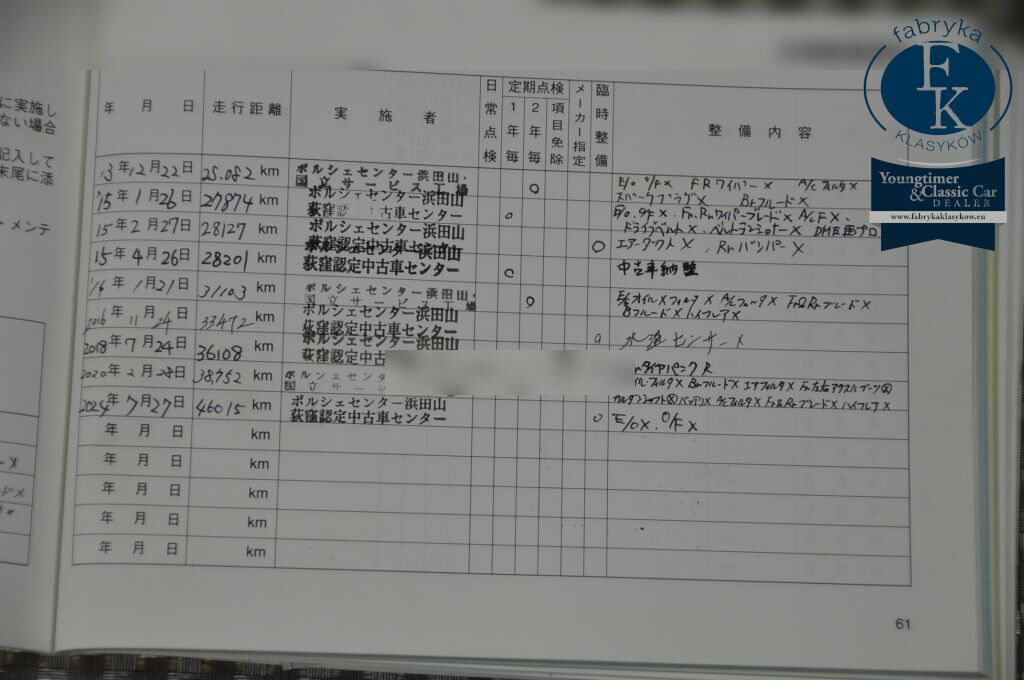 fabryka
FK
KLASYKÓW
Youngtimer
&Classic Car
DEALER
www.fabrykaklasykow.eu
に実施し
ない場合
記入して
末尾に添
・メンテ
年 月 日 走行距離 実施者 日常点検 定期点検 1年毎 2年毎 項目免除 メーカー指定 臨時整備 整備内容
13年12月22日 25.082 km ポルシェセンター浜田山・ ○ E/O O/F× FRワイパー× A/Cフィルタ×
国立サービス工場 スパークプラグ× Brフルード×
'15年1月26日 27874 km ポルシェセンター浜田山
荻窪認定中古車センター ○ E/O. O/F×. Fr.Rrワイパーブレード× A/C F×.
15年2月27日 28127 km ポルシェセンター浜田山 ドライブベルト×. ベルトテンショナー×
荻窪認定中古車センター ○ エアーダクト×. Rrバンパー×
15年4月26日 28201 km ポルシェセンター浜田山
荻窪認定中古車センター ○ 中古車納整
'16年1月21日 31103 km ポルシェセンター浜田山・ ○ オイル×フィルタ× A/Cフィルタ× Fr&Rrブレード×
国立サービス工場 Bフルード×ハイフレア×
2016年11月24日 33472 km ポルシェセンター浜田山
荻窪認定中古車センター ○ 水温センサー×
2018年7月24日 36108 km ポルシェセンター浜田山
荻窪認定中古 タイヤパンク R
2020年2月28日 38952 km ポルシェセンタ イル・フィルタ× Brフルード× エアフィルタ× Fr左右アクスルブーツ
国立サー バッテリ× A/Cフィルタ× Fr&Rrブレード× ハイフレア×
2024年7月27日 46015 km ポルシェセンター浜田山
荻窪認定中古車センター ○ E/O×. O/F×
年 月 日 km
年 月 日 km
年 月 日 km
年 月 日 km
年 月 日 km
61